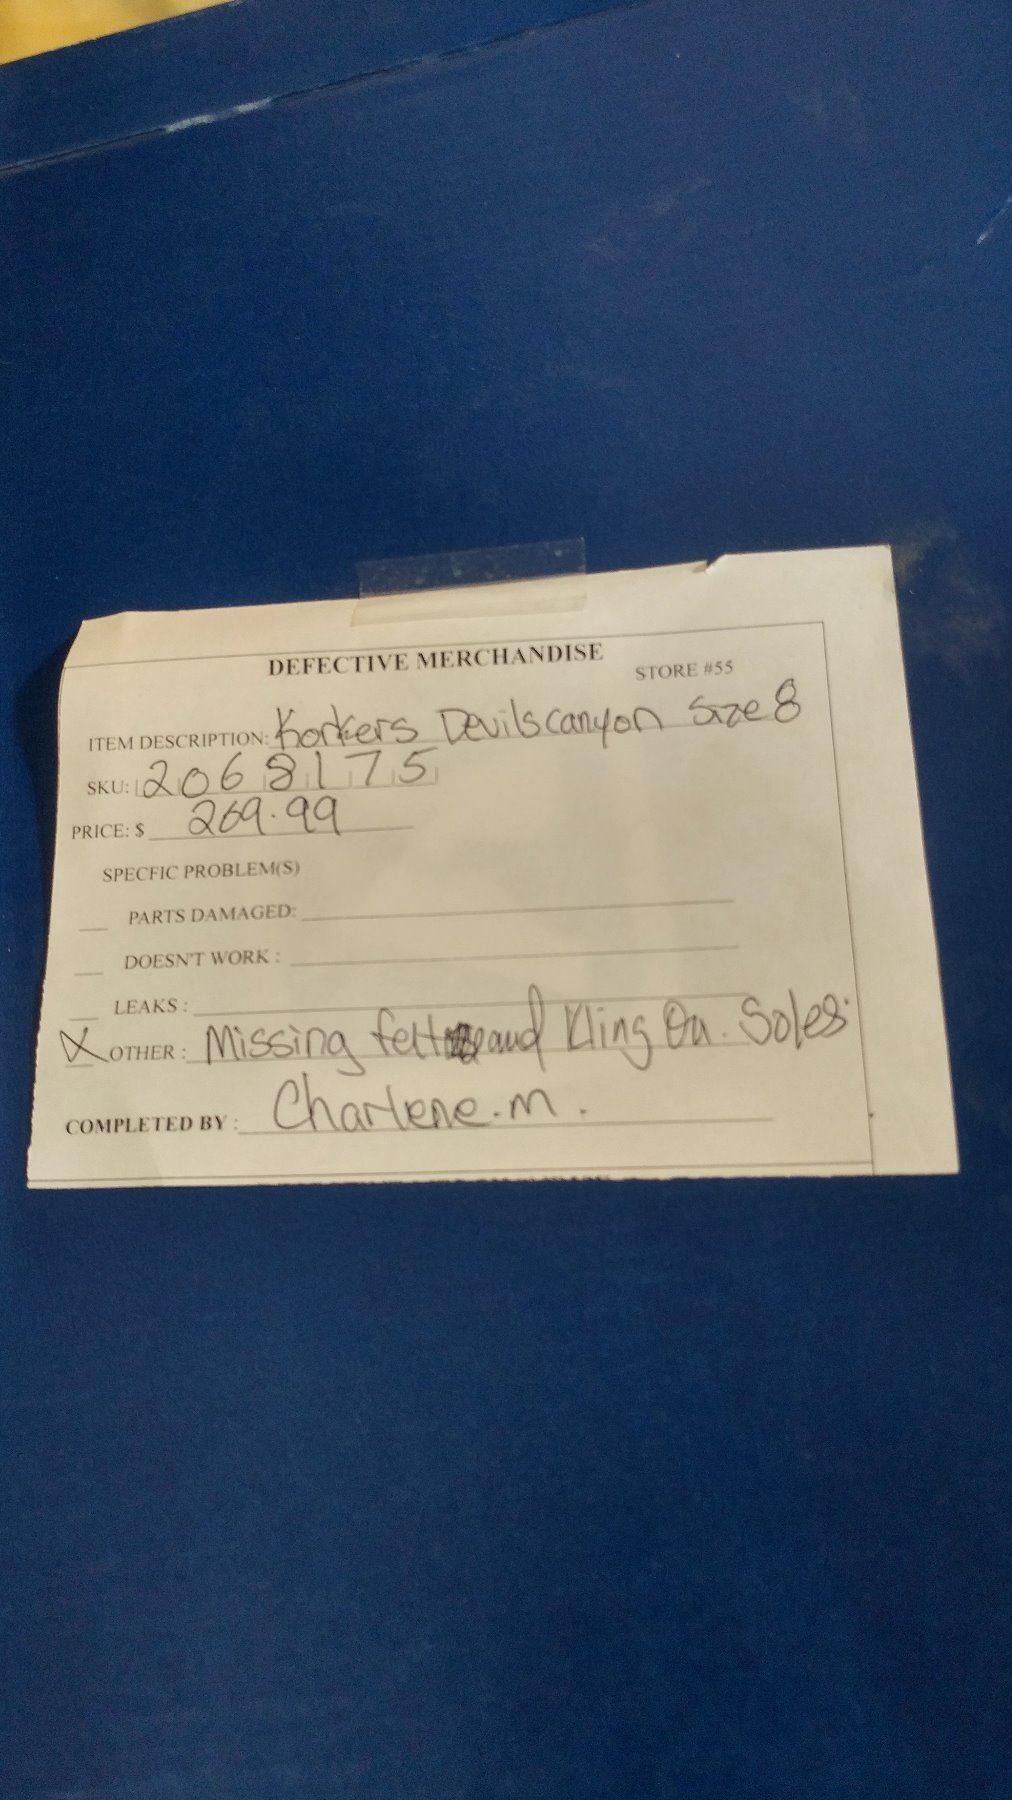 DEFECTIVE MERCHANDISE
STORE #55
ITEM DESCRIPTION: Korkers Devilscanyon Size 8
SKU: 2068175
PRICE: $ 269.99
SPECFIC PROBLEM(S)
PARTS DAMAGED:
DOESN'T WORK :
LEAKS :
X OTHER : Missing felt and Kling On. Soles.
COMPLETED BY : Charlene.m.